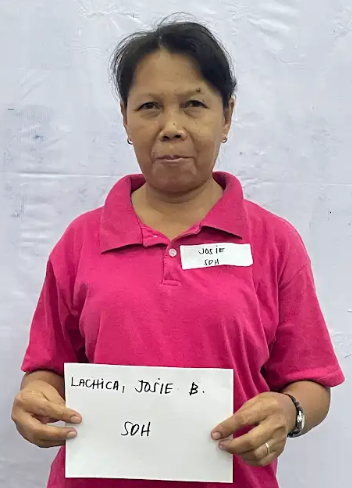 Josie
SOH
LACHICA, JOSIE B.
SOH